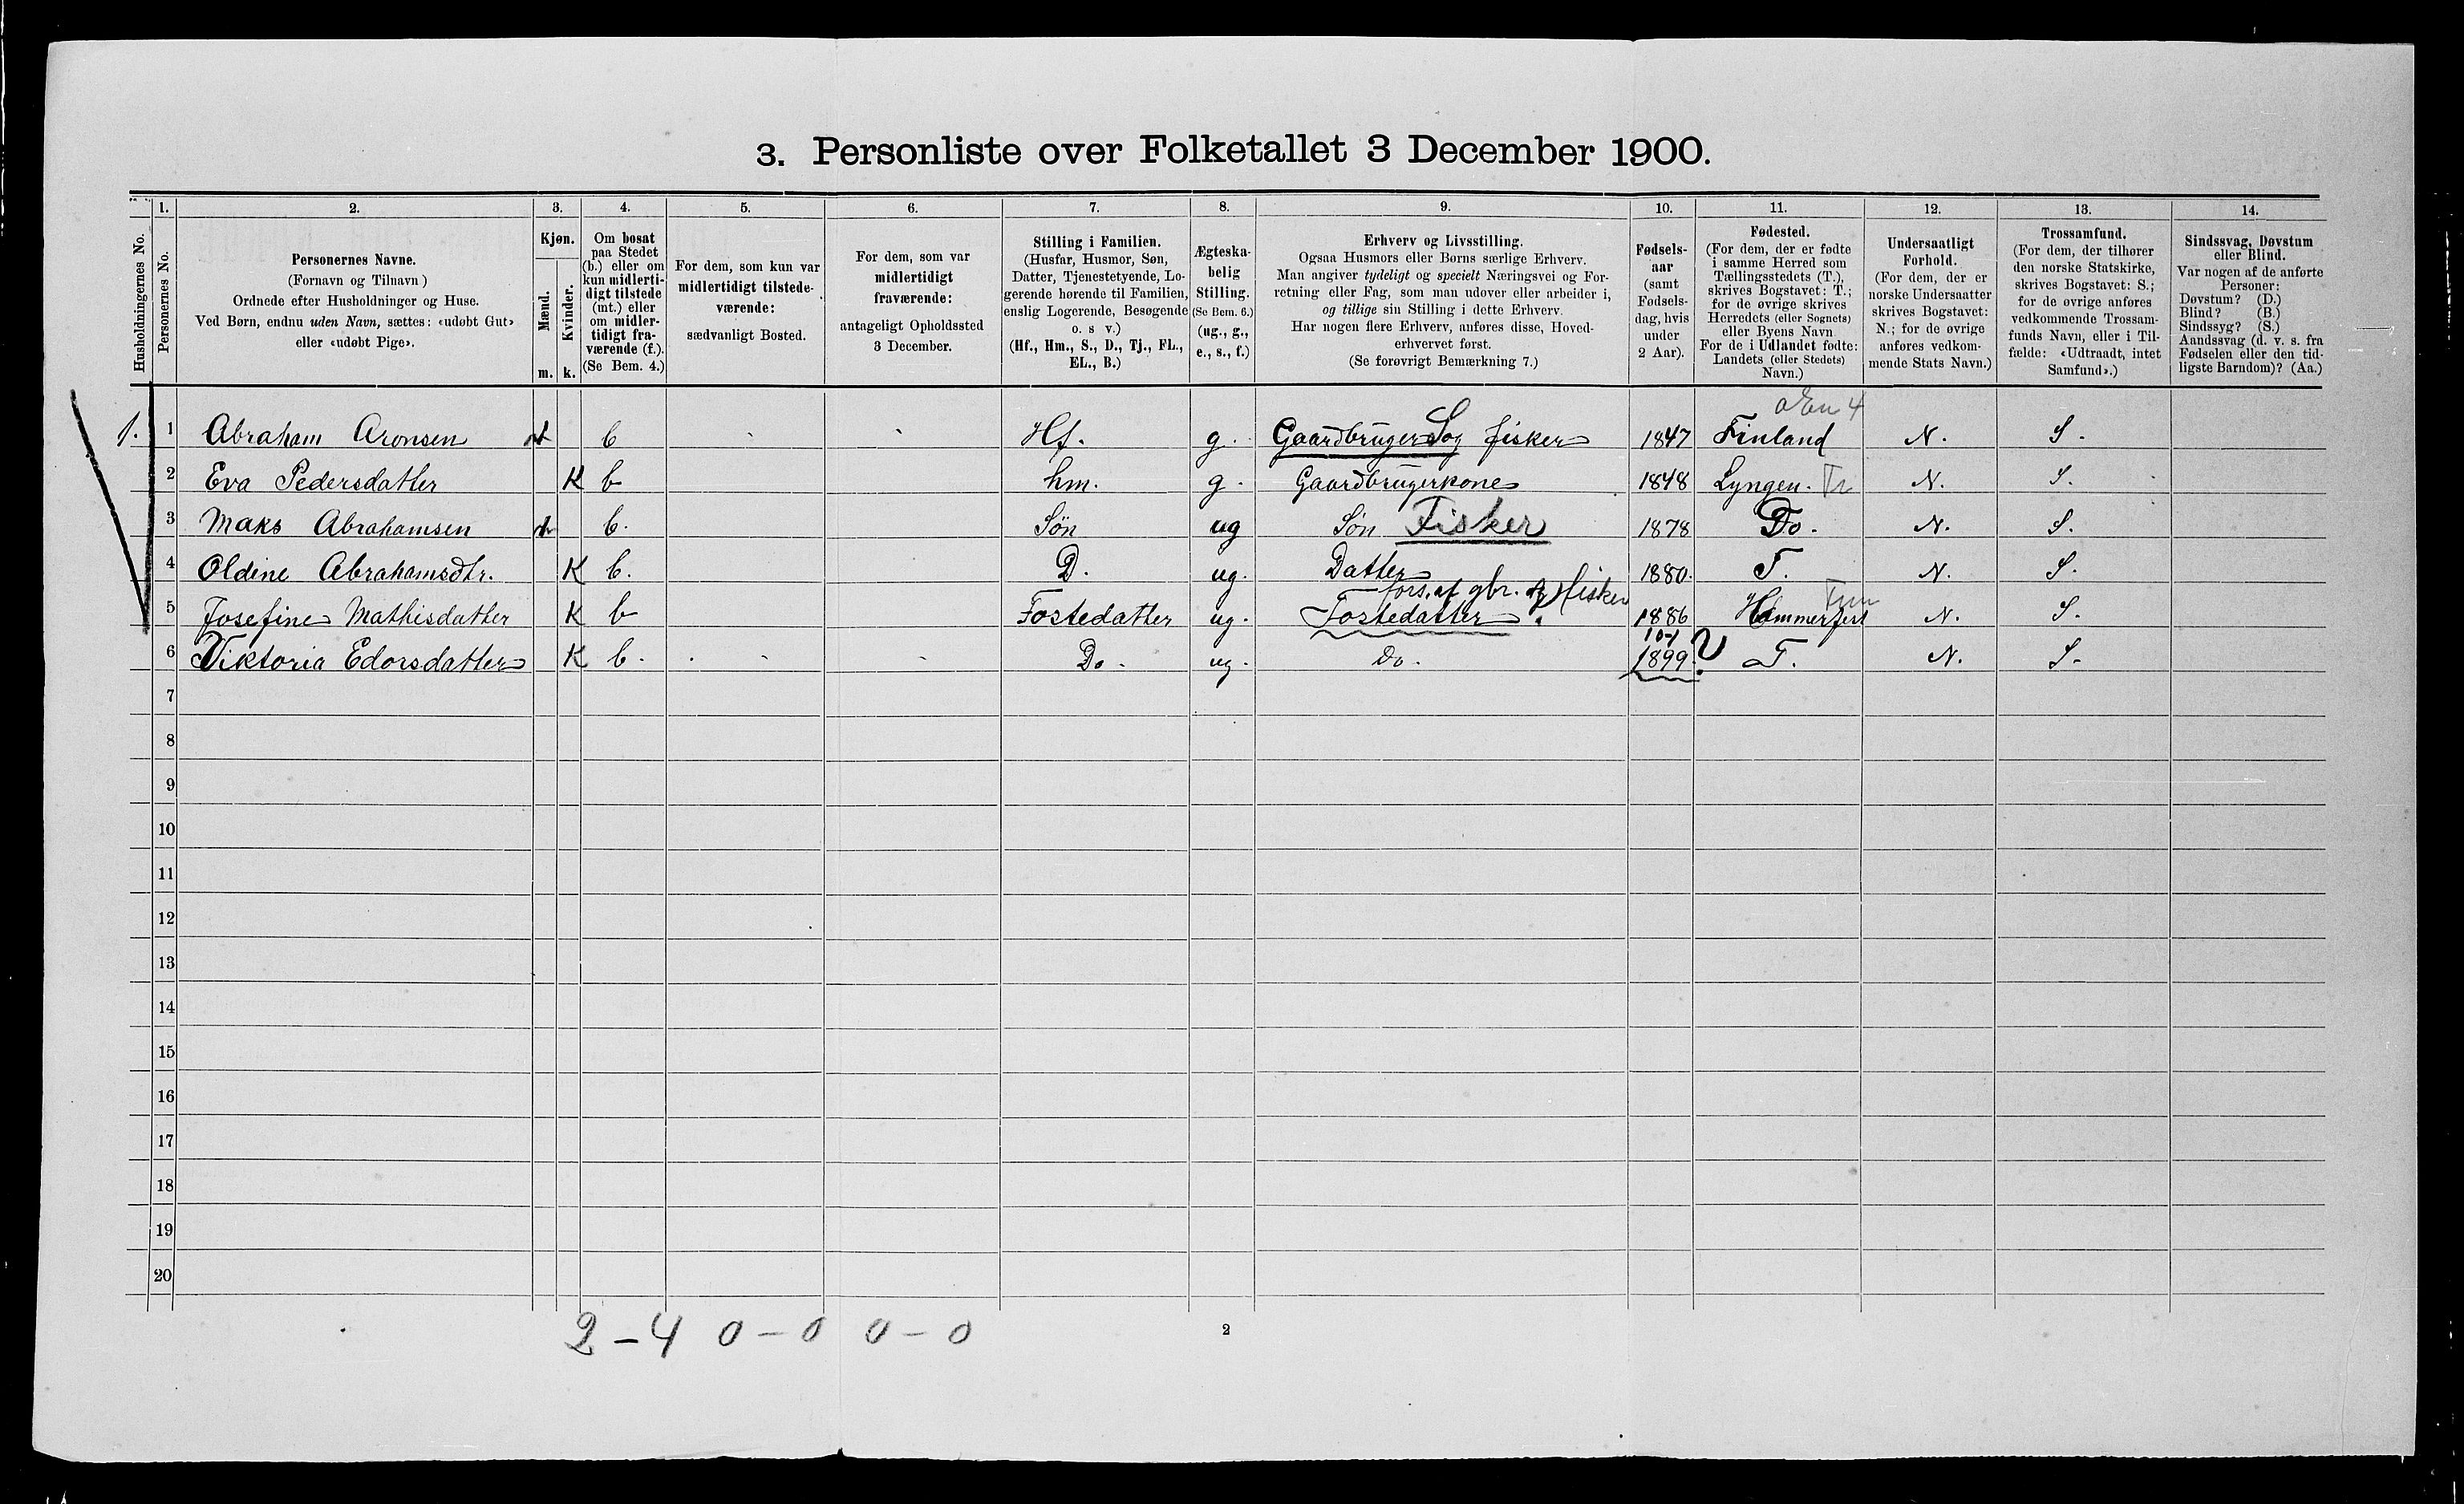 3. Personliste over Folketallet 3 December 1900.
Husholdningernes No.
1.
Personernes No.
2.
Personernes Navne.
(Fornavn og Tilnavn)
Ordnede efter Husholdninger og Huse.
Ved Børn, endnu uden Navn, sættes: «udøbt Gut»
eller «udøbt Pige».
3.
Kjøn.
Mænd.
Kvinder.
m. k.
4.
Om bosat
paa Stedet
(b.) eller om
kun midlerti-
digt tilstede
(mt.) eller
om midler-
tidigt fra-
værende (f.).
(Se Bem. 4.)
5.
For dem, som kun var
midlertidigt tilstede-
værende:
sædvanligt Bosted.
6.
For dem, som var
midlertidigt
fraværende:
antageligt Opholdssted
3 December.
7.
Stilling i Familien.
(Husfar, Husmor, Søn,
Datter, Tjenestetyende, Lo-
gerende hørende til Familien,
enslig Logerende, Besøgende
o. s v.)
(Hf., Hm., S., D., Tj., FL.,
EL., B.)
8.
Ægteska-
belig
Stilling.
(Se Bem. 6.)
(ug., g.,
e., s., f.)
9.
Erhverv og Livsstilling.
Ogsaa Husmors eller Børns særlige Erhverv.
Man angiver tydeligt og specielt Næringsvei og For-
retning eller Fag, som man udøver eller arbeider i,
og tillige sin Stilling i dette Erhverv.
Har nogen flere Erhverv, anføres disse, Hoved-
erhvervet først.
(Se forøvrigt Bemærkning 7.)
10.
Fødsels-
aar
(samt
Fødsels-
dag, hvis
under
2 Aar).
11.
Fødested.
(For dem, der er fødte
i samme Herred som
Tællingsstedets (T.),
skrives Bogstavet: T.;
for de øvrige skrives
Herredets (eller Sognets)
eller Byens Navn.
For de i Udlandet fødte:
Landets (eller Stedets)
Navn.)
12.
Undersaatligt
Forhold.
(For dem, der er
norske Undersaatter
skrives Bogstavet:
N.; for de øvrige
anføres vedkom-
mende Stats Navn.)
13.
Trossamfund.
(For dem, der tilhører
den norske Statskirke,
skrives Bogstavet: S.;
for de øvrige anføres
vedkommende Trossam-
funds Navn, eller i Til-
fælde: «Udtraadt, intet
Samfund».)
14.
Sindssvag, Døvstum
eller Blind.
Var nogen af de anførte
Personer:
Døvstum? (D.)
Blind? (B.)
Sindssyg? (S.)
Aandssvag (d. v. s. fra
Fødselen eller den tid-
ligste Barndom)? (Aa.)
1. 1 Abraham Aronsen b Hf. g. Gaardbruger S og fisker 1847 Finland N. S.
2 Eva Pedersdatter K b hm. g. Gaardbrugerkone 1848 Lyngen. Tr N. S.
3 Maks Abrahamsen b. Søn ug Søn Fisker 1878 Do. N. S.
4 Oldine Abrahamsdtr. K b. D. ug. Datter 1880. T. N. S.
fors. af gbr. og fisker
5 Josefine Mathisdatter K b Fostedatter ug. Fostedatter 1886 Hammerfest N. S.
10-1
6 Viktoria Edorsdatter K b. Do. ug. Do. 1899 ? T. N. S.
7
8
9
10
11
12
13
14
15
16
17
18
19
20
2 – 4 0 – 0 0 – 0
2